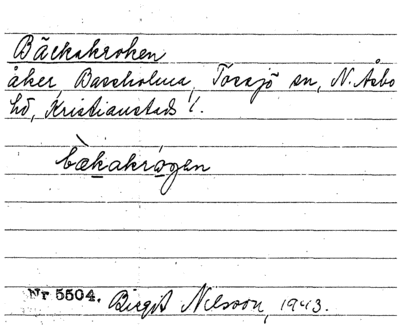 Bäckakroken
åker, Bassholma, Tossjö sn, N. Åsbo
hd, Kristianstads l.
bækakrogen
Nr 5504. Birgit Nilsson, 1943.